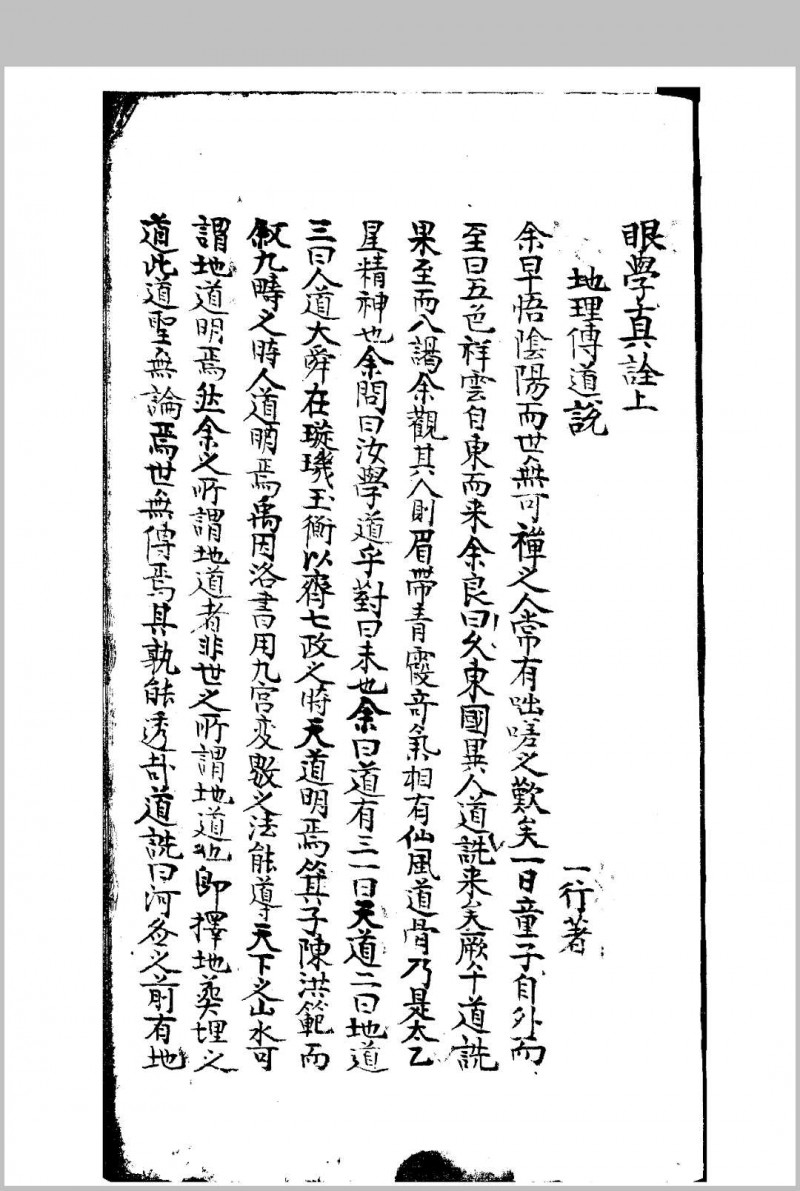 眼學真詮上
地理傳道說
一行著
余早悟陰陽而世無可禪之人常有咄嗟之歎矣一日童子自外而
至曰五色祥雲自東而来余良曰久東國異人道詵来矣厥午道詵
果至而入謁余觀其人則眉帶青霞奇氣相有仙風道骨乃是太乙
星精神也余問曰汝學道乎對曰未也余曰道有三一曰天道二曰地道
三曰人道大舜在璇璣玉衡以齊七政之時天道明焉箕子陳洪範而
叙九疇之時人道明焉禹因洛書用九宮变數之法能導天下之山水可
謂地道明焉然余之所謂地道者非世之所謂地道也卽擇地葬埋之
道此道聖無論焉世無傳焉其孰能透哉道詵曰河岳之前有地